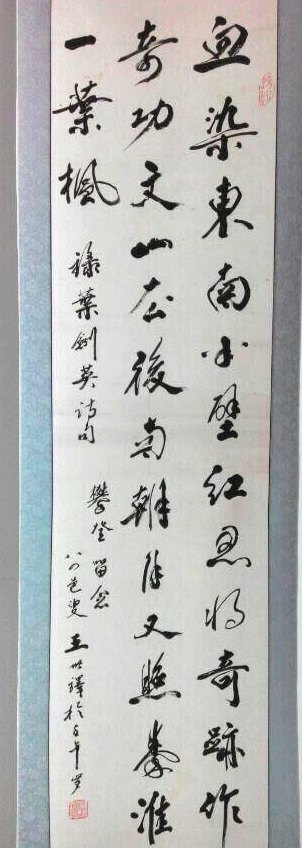 血染東南半壁紅忍將奇跡作
奇功文山去後南朝月又照秦淮
一葉楓
錄葉劍英詩句
登留念
王世於午